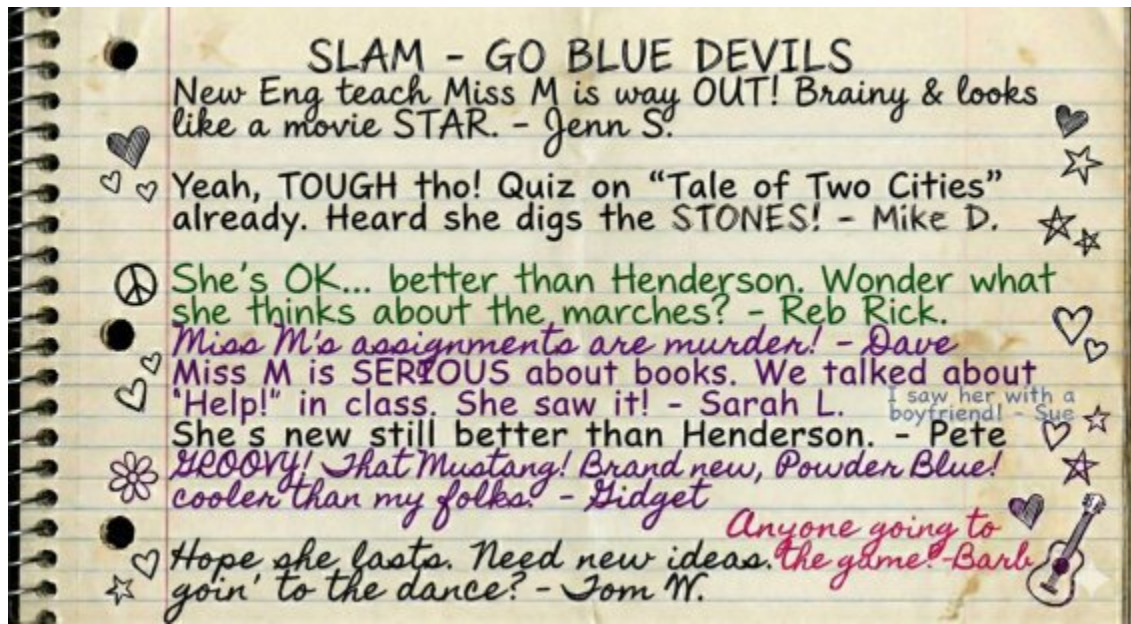 SLAM - GO BLUE DEVILS
New Eng teach Miss M is way OUT! Brainy & looks
like a movie STAR. - Jenn S.
Yeah, TOUGH tho! Quiz on "Tale of Two Cities"
already. Heard she digs the STONES! - Mike D.
She's OK... better than Henderson. Wonder what
she thinks about the marches? - Reb Rick.
Miss M's assignments are murder! - Dave
Miss M is SERIOUS about books. We talked about
"Help!" in class. She saw it! - Sarah L.
I saw her with a
boyfriend! - Sue
She's new still better than Henderson. - Pete
GROOVY! That Mustang! Brand new, Powder Blue!
cooler than my folks. - Gidget
Anyone going to
the game?-Barb
Hope she lasts. Need new ideas.
goin' to the dance? - Tom W.